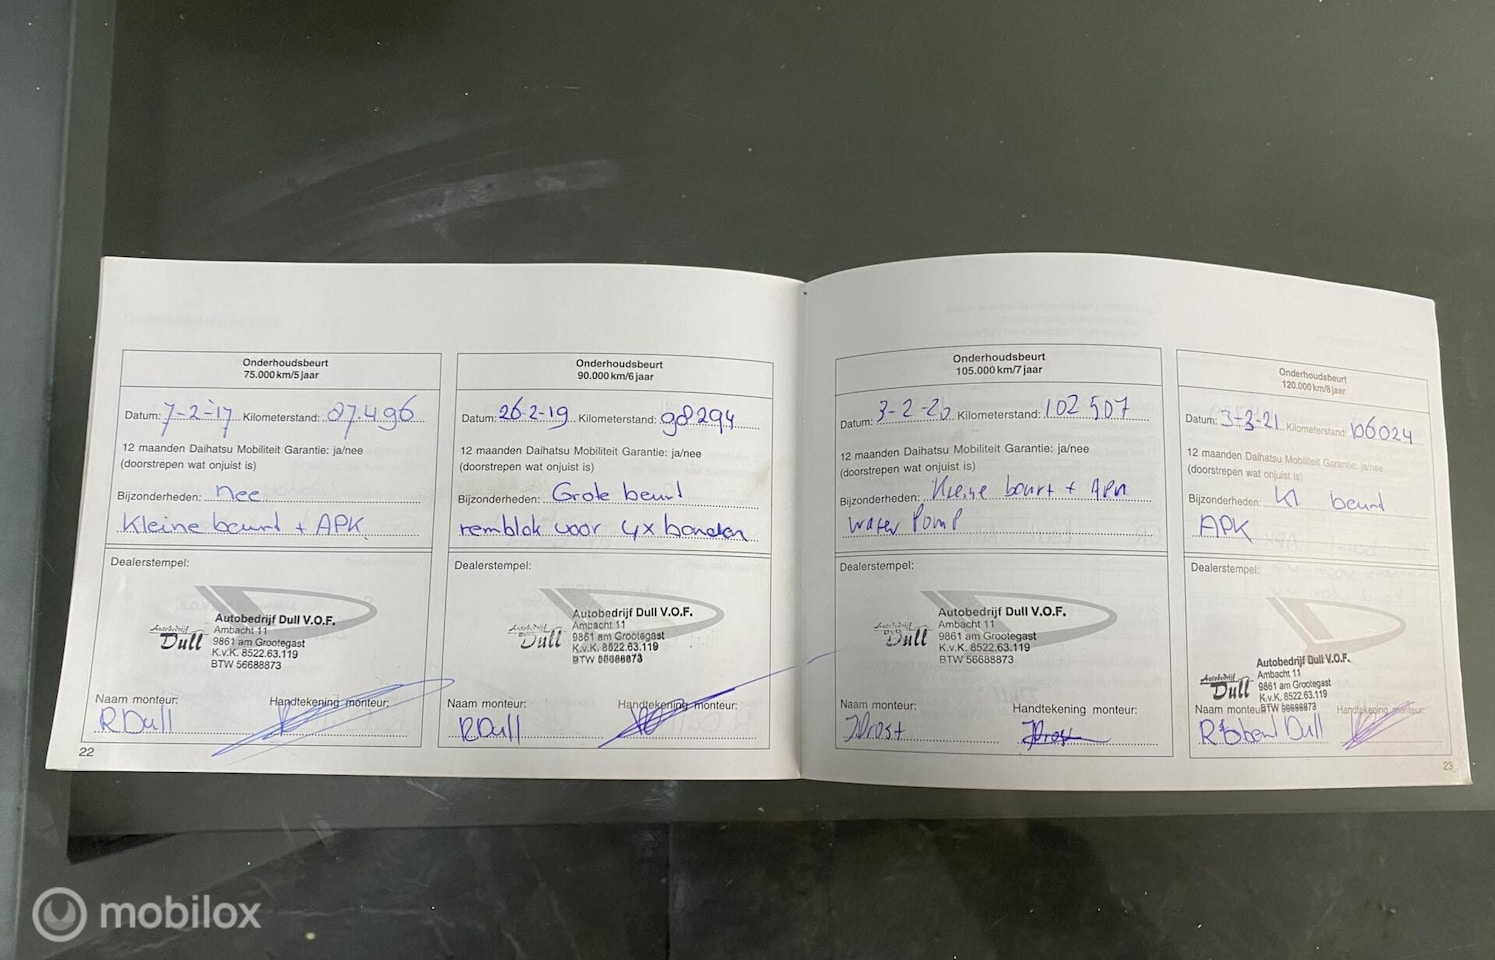 Onderhoudsbeurt
75.000 km/5 jaar
Datum: 7-2-17 Kilometerstand: 87.496
12 maanden Daihatsu Mobiliteit Garantie: ja/nee
(doorstrepen wat onjuist is)
Bijzonderheden: nee
Kleine beurt + APK
Dealerstempel:
Autobedrijf Dull
Autobedrijf Dull V.O.F.
Ambacht 11
9861 am Grootegast
K.v.K. 8522.63.119
BTW 56688873
Naam monteur: Handtekening monteur:
R Dull
22
Onderhoudsbeurt
90.000 km/6 jaar
Datum: 26-2-19 Kilometerstand: 98294
12 maanden Daihatsu Mobiliteit Garantie: ja/nee
(doorstrepen wat onjuist is)
Bijzonderheden: Grote beurt
remblok voor 4x banden
Dealerstempel:
Autobedrijf Dull
Autobedrijf Dull V.O.F.
Ambacht 11
9861 am Grootegast
K.v.K. 8522.63.119
BTW 56688873
Naam monteur: Handtekening monteur:
R Dull
Onderhoudsbeurt
105.000 km/7 jaar
Datum: 3-2-20 Kilometerstand: 102507
12 maanden Daihatsu Mobiliteit Garantie: ja/nee
(doorstrepen wat onjuist is)
Bijzonderheden: Kleine beurt + APK
water Pomp
Dealerstempel:
Autobedrijf Dull
Autobedrijf Dull V.O.F.
Ambacht 11
9861 am Grootegast
K.v.K. 8522.63.119
BTW 56688873
Naam monteur: Handtekening monteur:
JDrost
Onderhoudsbeurt
120.000 km/8 jaar
Datum: 3-3-21 Kilometerstand: 106024
12 maanden Daihatsu Mobiliteit Garantie: ja/nee
(doorstrepen wat onjuist is)
Bijzonderheden: Kl beurt
APK
Dealerstempel:
Autobedrijf Dull
Autobedrijf Dull V.O.F.
Ambacht 11
9861 am Grootegast
K.v.K. 8522.63.119
BTW 56688873
Naam monteur: Handtekening monteur:
Dull
23
mobilox